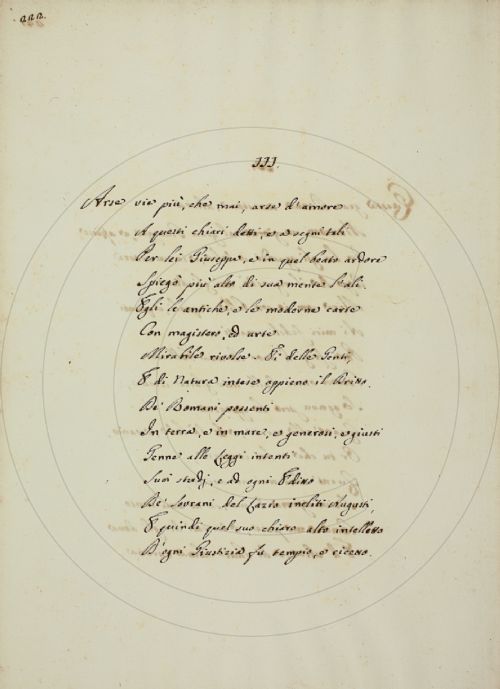 222.
III.
Arse vie più, che mai, arse d'amore
A questi chiari detti, e a segni tali
Per lei Giuseppe, e in quel beato ardore
Spiegò più alto di sua mente l'ali.
Egli le antiche, e le moderne carte
Con magistero, ed arte
Mirabile rivolse. Ei delle Genti,
E di Natura intese appieno il Dritto.
De' Romani possenti
In terra, e in mare, e generosi, e giusti
Tenne alle Leggi intenti
Suoi studj, e ad ogni Editto
De' Sovrani del Lazio incliti Augusti.
E quindi quel suo chiaro alto intelletto
D'ogni Giustizia fu tempio, e ricetto.